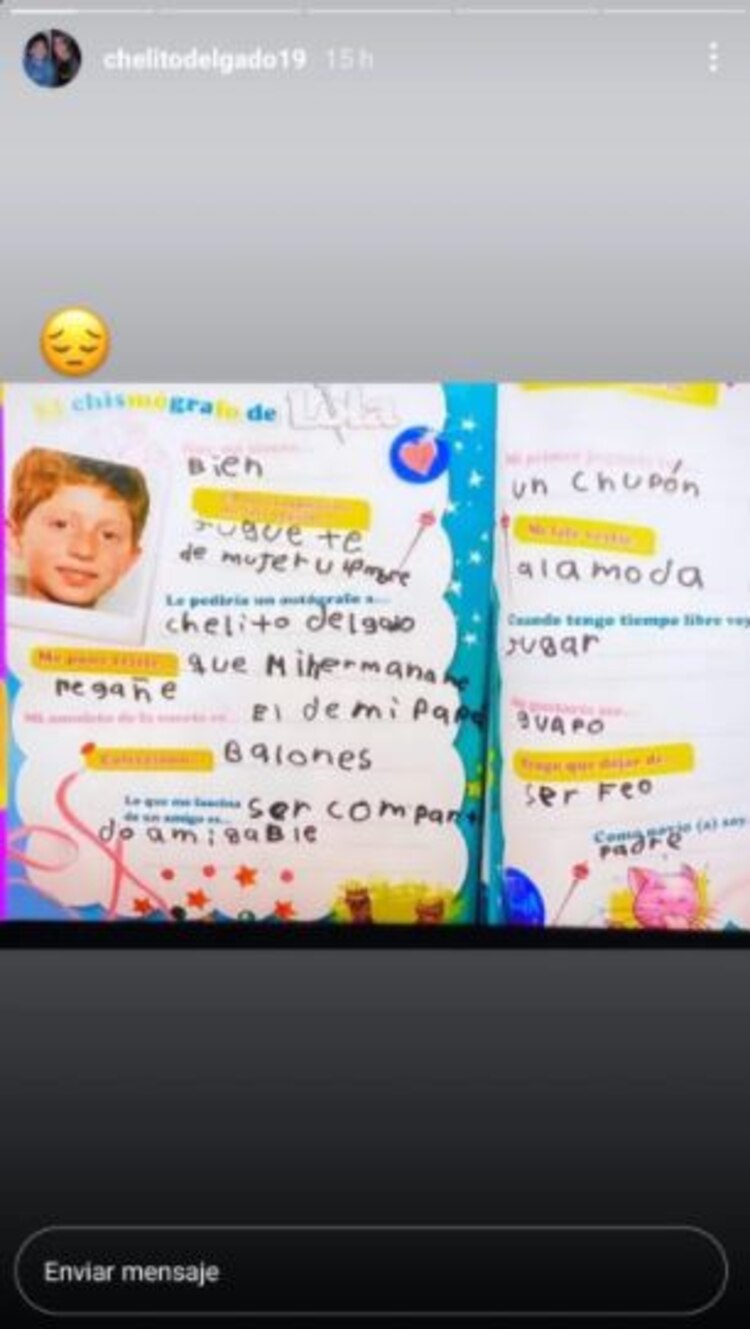 chelitodelgado19 15 h
chismógrafo de Lyla
Bien
Jugue te
de mujer u hombre
Le pediría un autógrafo a...
chelito delgado
Me pone triste
que Mi hermana me
regañe
Mi amuleto de la suerte es...
El de mi Papá
Colecciono
Balones
Lo que me fascina
de un amigo es...
ser compar
do amigable
Mi primer
un chupón
Me late vestir
a la moda
Cuando tengo tiempo libre voy
Jugar
Me gustaría ser...
guapo
Tengo que dejar de
ser Feo
Como novio (a) soy
Padre
Enviar mensaje